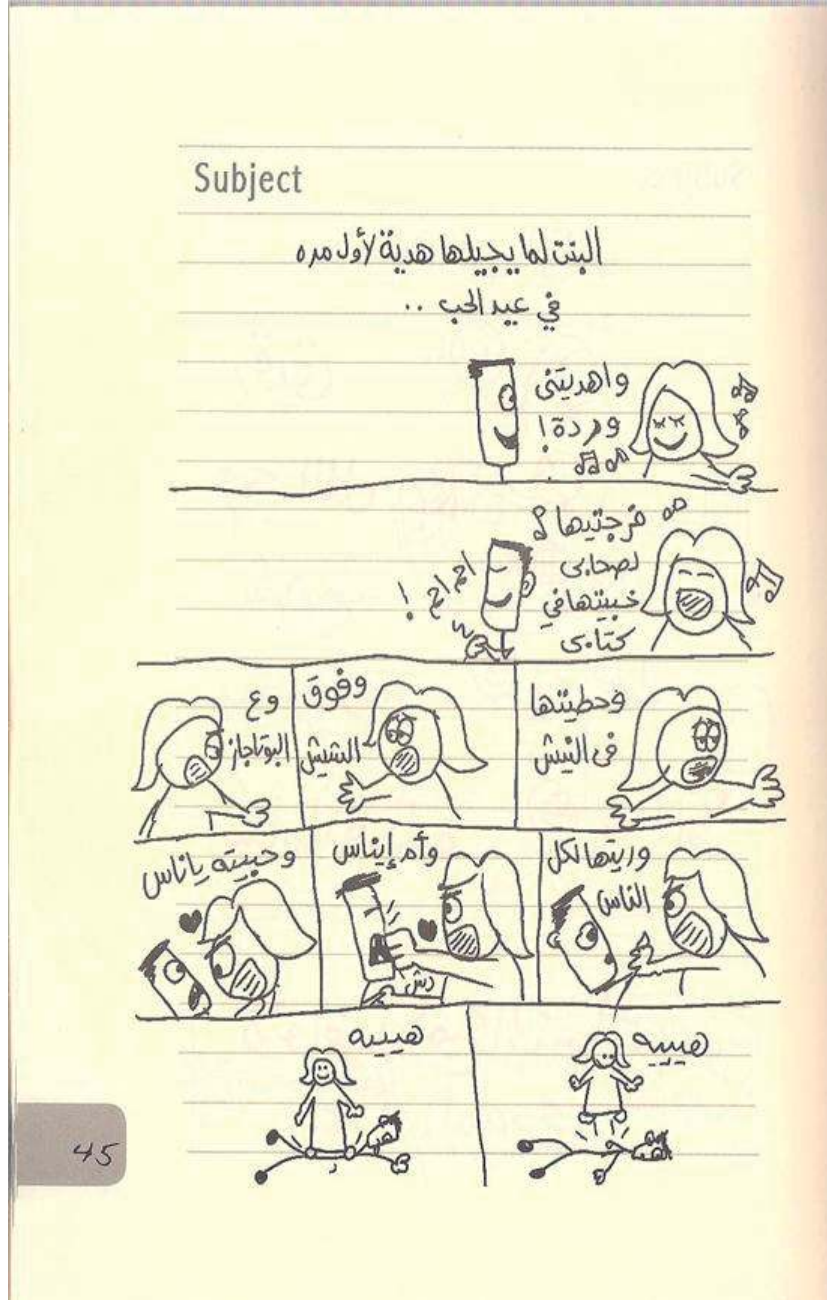 Subject
البنت لما يجيلها هدية لأول مره
في عيد الحب ..
واهديتنى
وردة!
فرجتيها
لصحابى
خبيتهافي
كتابى
احم احم !
وحطيتها
فى النيش
وفوق
الشيش
وع
البوتاجاز
وريتها لكل
الناس
وأم إيناس
دش
وحبيته ياناس
هييييه
هيييه
45